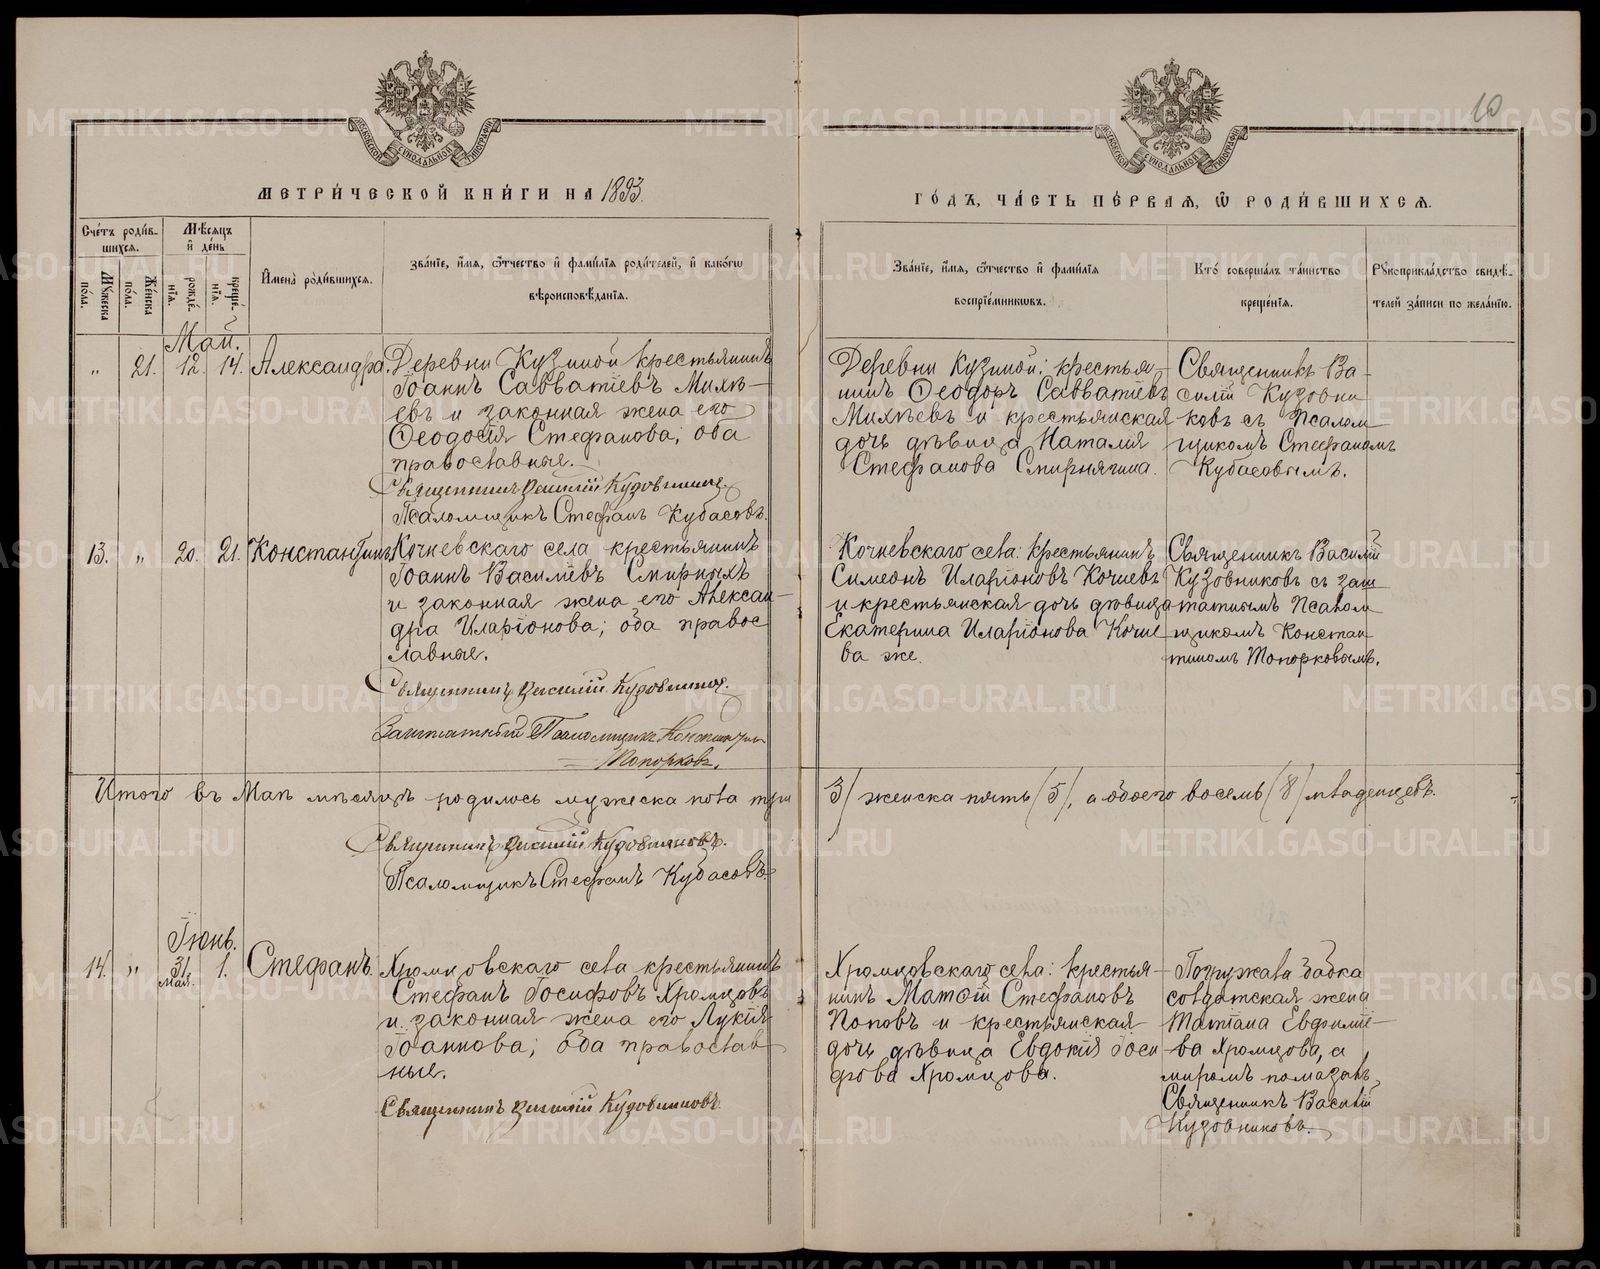 10
МЕТРИ́ЧЕСКОЙ КНИ́ГИ НА 1893.
ГО́ДЪ, ЧА́СТЬ ПЕ́РВАѦ, Ѡ РОДИ́ВШИХСѦ.
Сче́тъ роди́в-
шихсѧ.
Мѣ́сѧцъ
и҆ де́нь
Мꙋ́жеска
по́ла.
Же́нска
по́ла.
рожде́-
нїѧ.
креще́-
нїѧ.
И҆мена̀ роди́вшихсѧ.
Зва́нїе, и҆́мѧ, ѻ҆́тчество и҆ фами́лїѧ роди́телей, и҆ како́гѡ
вѣроисповѣ́данїѧ.
Зва́нїе, и҆́мѧ, ѻ҆́тчество и҆ фами́лїѧ
воспрїе́мникѡвъ.
Кто̀ соверша́лъ та́инство
креще́нїѧ.
Рꙋкоприкла́дство свидѣ́-
телей за́писи по жела́нїю.
Май.
„ 21. 12. 14. Александра.
Деревни Кузиной крестьянинъ
Іоаннъ Савватіевъ Михѣ-
евъ и законная жена его
Ѳеодосія Стефанова; оба
православные.
Священникъ Василій Кузовниковъ
Псаломщикъ Стефанъ Кубасовъ.
Деревни Кузиной: крестья-
нинъ Ѳеодоръ Савватіевъ
Михѣевъ и крестьянская
дочь дѣвица Наталія
Стефанова Смирнягина.
Священникъ Ва-
силій Кузовни
ковъ съ Псалом
щикомъ Стефаномъ
Кубасовымъ.
13. „ 20. 21. Константинъ
Кочневскаго села крестьянинъ
Іоаннъ Василіевъ Смирныхъ
и законная жена его Алексан-
дра Иларіонова; оба правос
лавные.
Священникъ Василій Кузовниковъ.
Заштатный Псаломщикъ Константинъ
Топорковъ.
Кочневскаго села: крестьянинъ
Симеонъ Иларіоновъ Кочневъ
и крестьянская дочь дѣвица
Екатерина Иларіонова Кочне
ва же.
Священникъ Василій
Кузовниковъ съ заш
татнымъ Псалом
щикомъ Констан
тиномъ Топорковымъ.
Итого въ Маѣ мѣсяцѣ родилось мужеска пола три
3/ женска пять /5/, а обоего восемь /8/ младенцевъ.
Священникъ Василій Кузовниковъ.
Псаломщикъ Стефанъ Кубасовъ.
Іюнь.
14. „ 31. 1. Стефанъ.
Мая.
Хромцовскаго села крестьянинъ
Стефанъ Іосифовъ Хромцовъ
и законная жена его Лукія
Іоаннова; оба православ
ные.
Священникъ Василій Кузовниковъ.
Хромцовскаго села: крестья-
нинъ Матѳій Стефановъ
Поповъ и крестьянская
дочь дѣвица Евдокія Іоси
фова Хромцова.
Погружала бабка
солдатская жена
Татіана Евфиміе-
ва Хромцова, а
миромъ помазалъ
Священникъ Василій
Кузовниковъ.